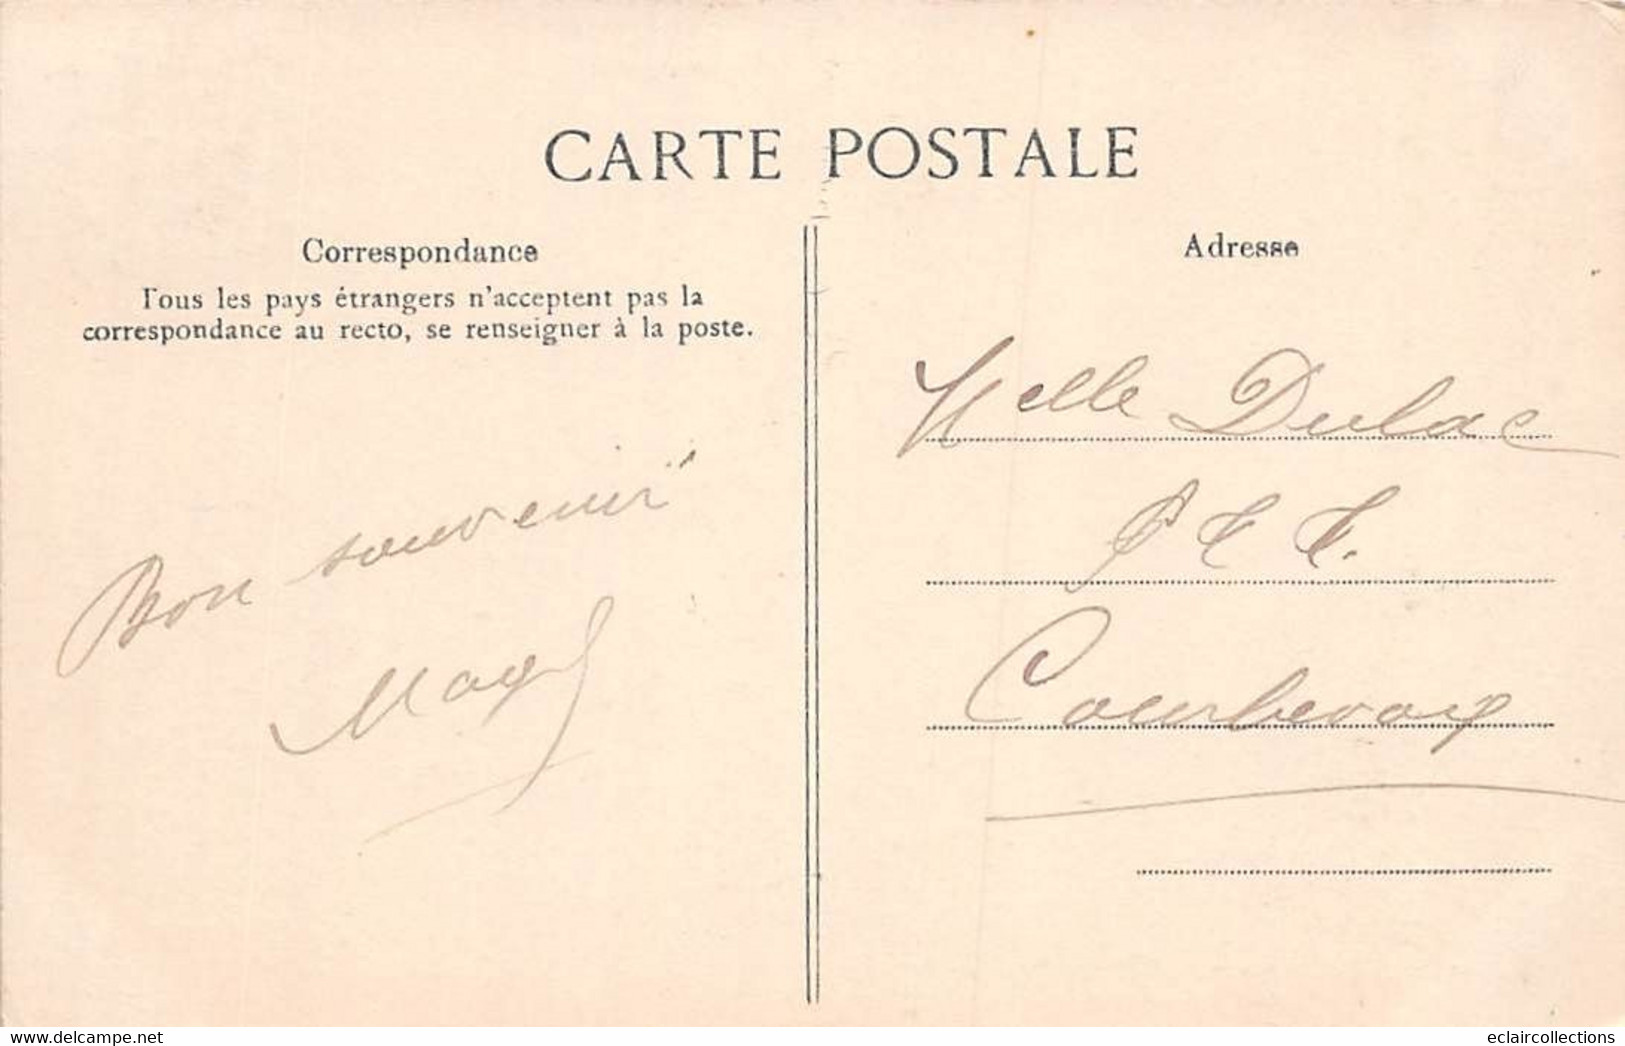 CARTE POSTALE
Correspondance
Tous les pays étrangers n'acceptent pas la
correspondance au recto, se renseigner à la poste.
Bon souvenir
Adresse
Melle Dulac
P T T.
Courbevoie
www.delcampe.net
eclaircollections